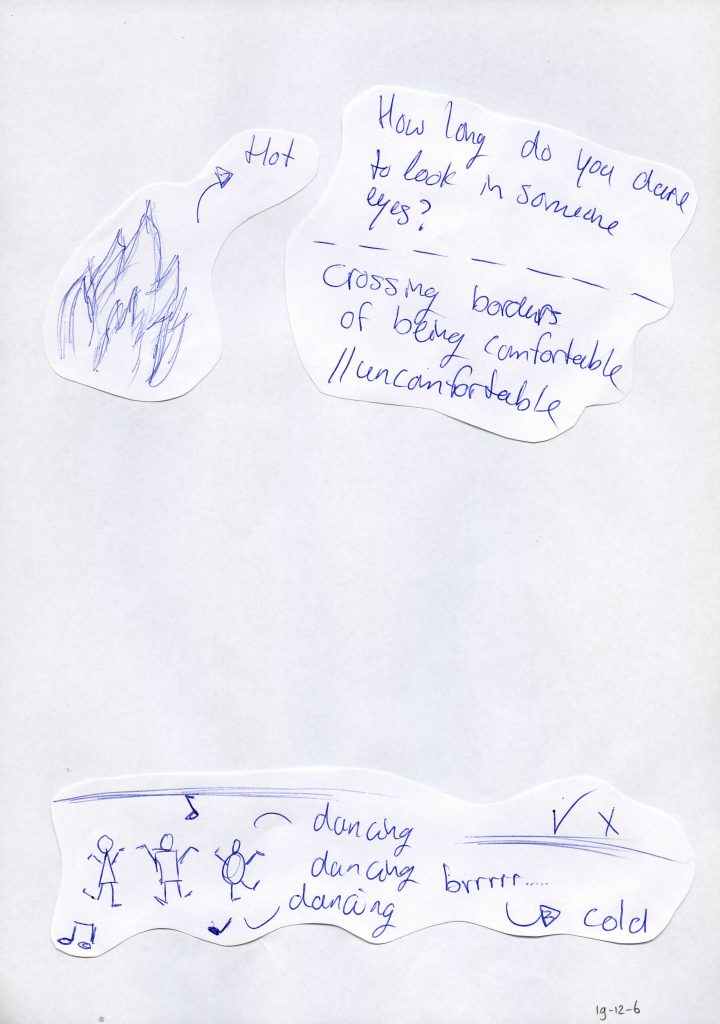 Hot
How long do you dare
to look in someone
eyes?
Crossing borders
of being comfortable
//uncomfortable
dancing
dancing
dancing
brrrrr.....
cold
19-12-6